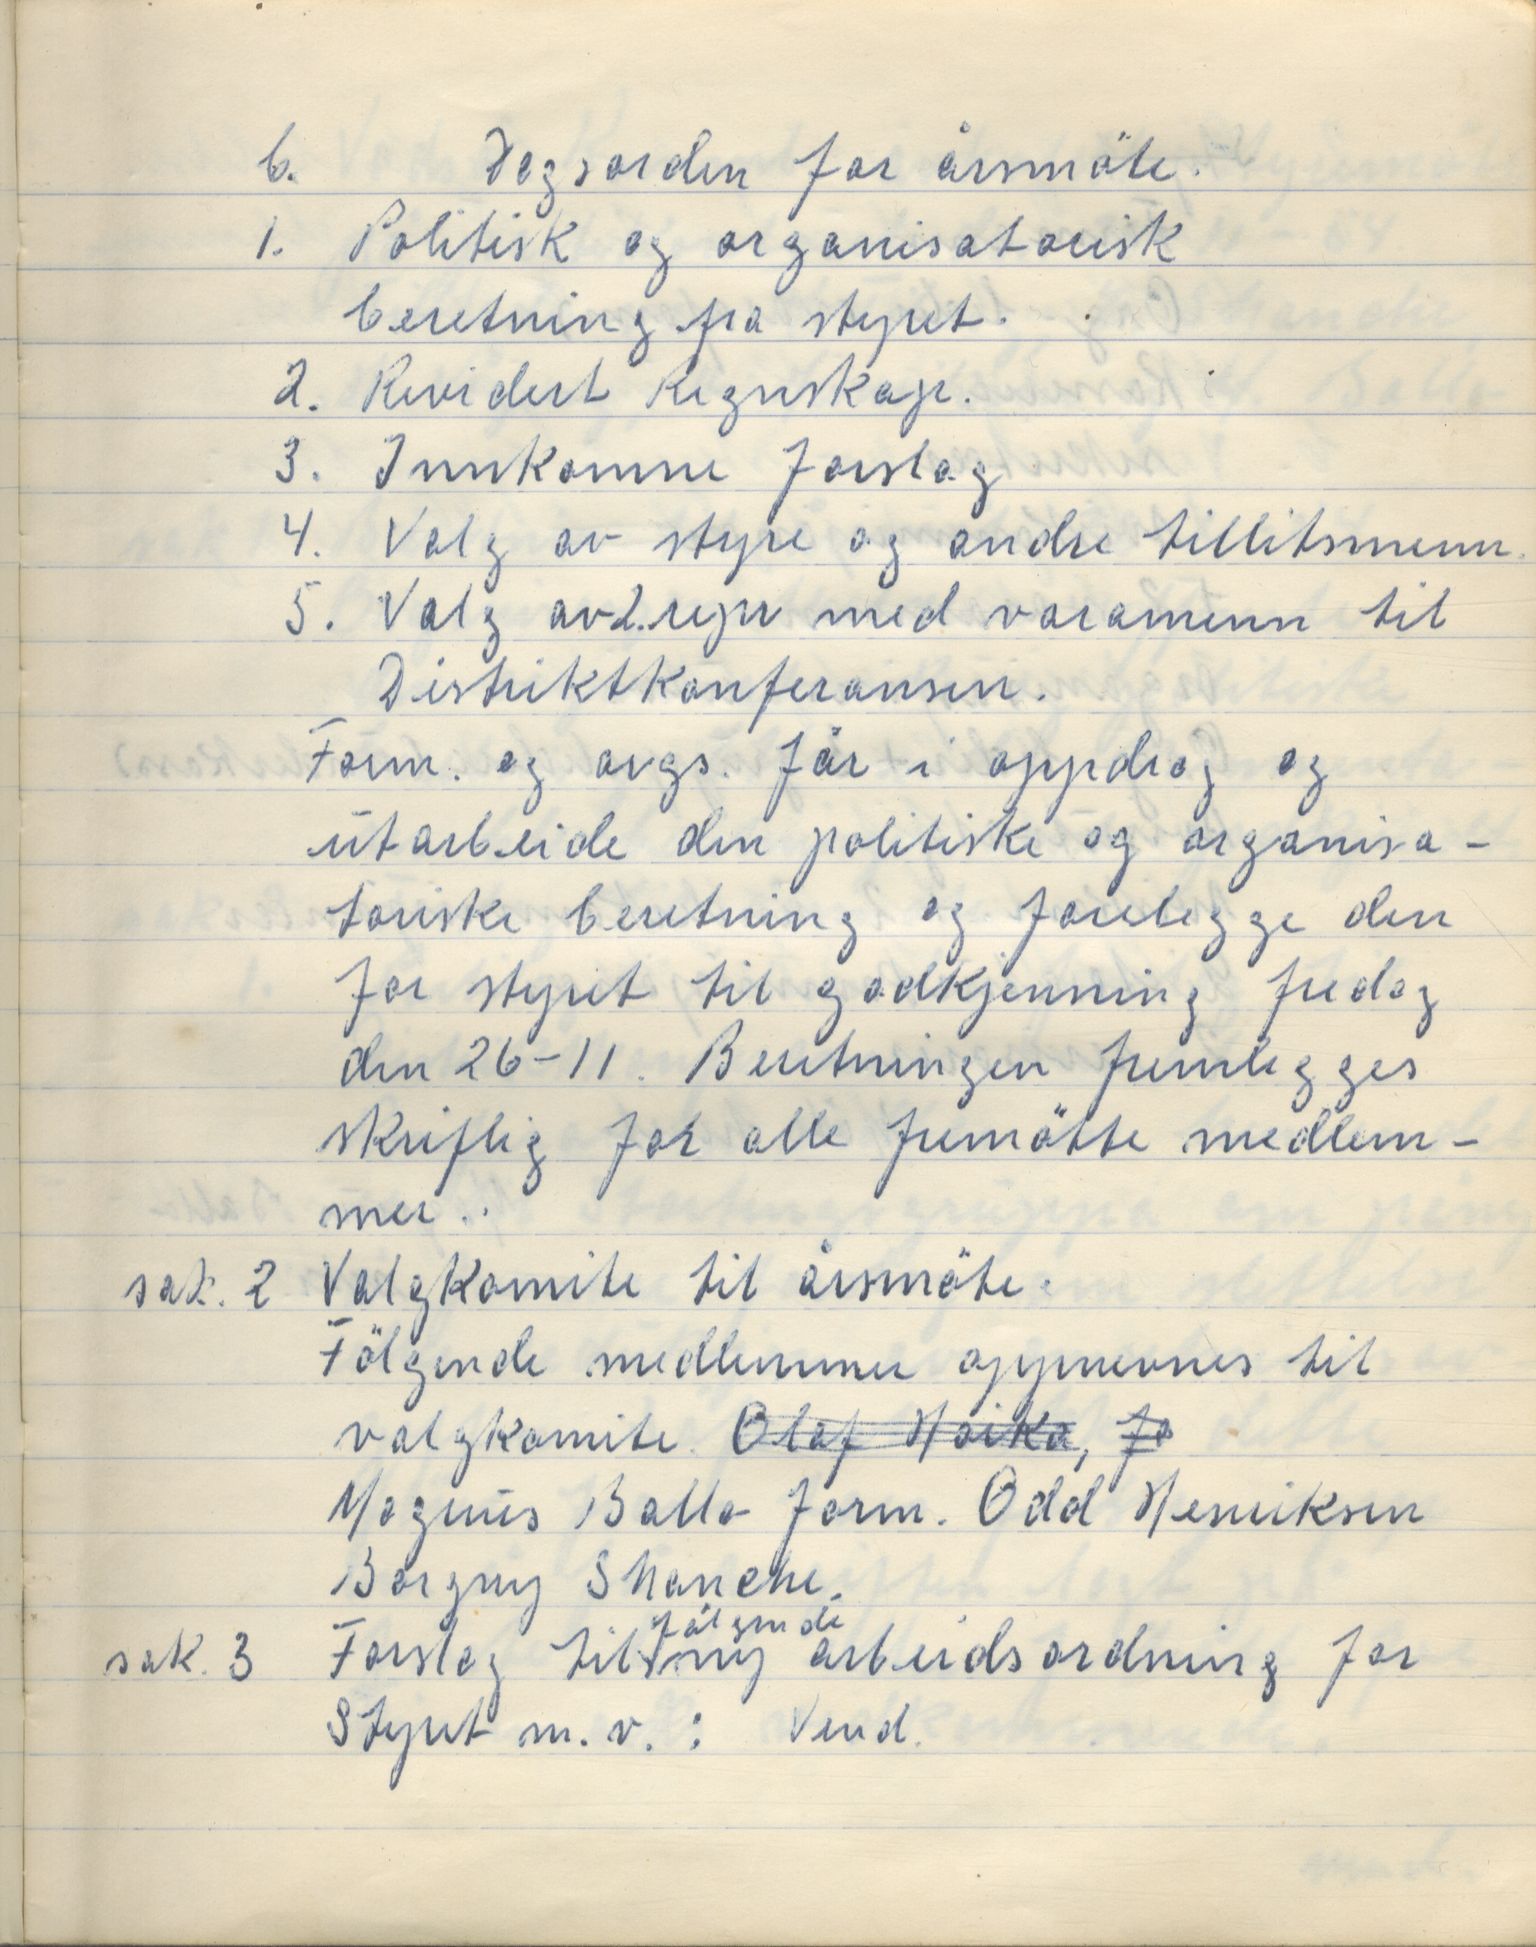 b. Dagsorden for årsmöte.
1. Politisk og organisatorisk
beretning fra styret.
2. Revidert Regnskap.
3. Innkomne forslag
4. Valg av styre og andre tillitsmenn.
5. Valg av 2. repr med varamenn til
Distriktkonferansen.
Form. og avgs. får i oppdrag og
utarbeide den politiske og organisa-
toriske beretning og forelegge den
for styret til godkjenning fredag
den 26-11. Beretningen fremlegges
skriftlig for alle fremötte medlem-
mer.
sak. 2 Valgkomite til årsmöte.
Fölgende medlemmer oppnevnes til
valgkomite. Olaf Hoika, Jo
Magnus Ballo form. Odd Henriksen
Borgny Skanche.
fölgende
sak. 3 Forslag til ny arbeidsordning for
Styret m.v.: Vend.